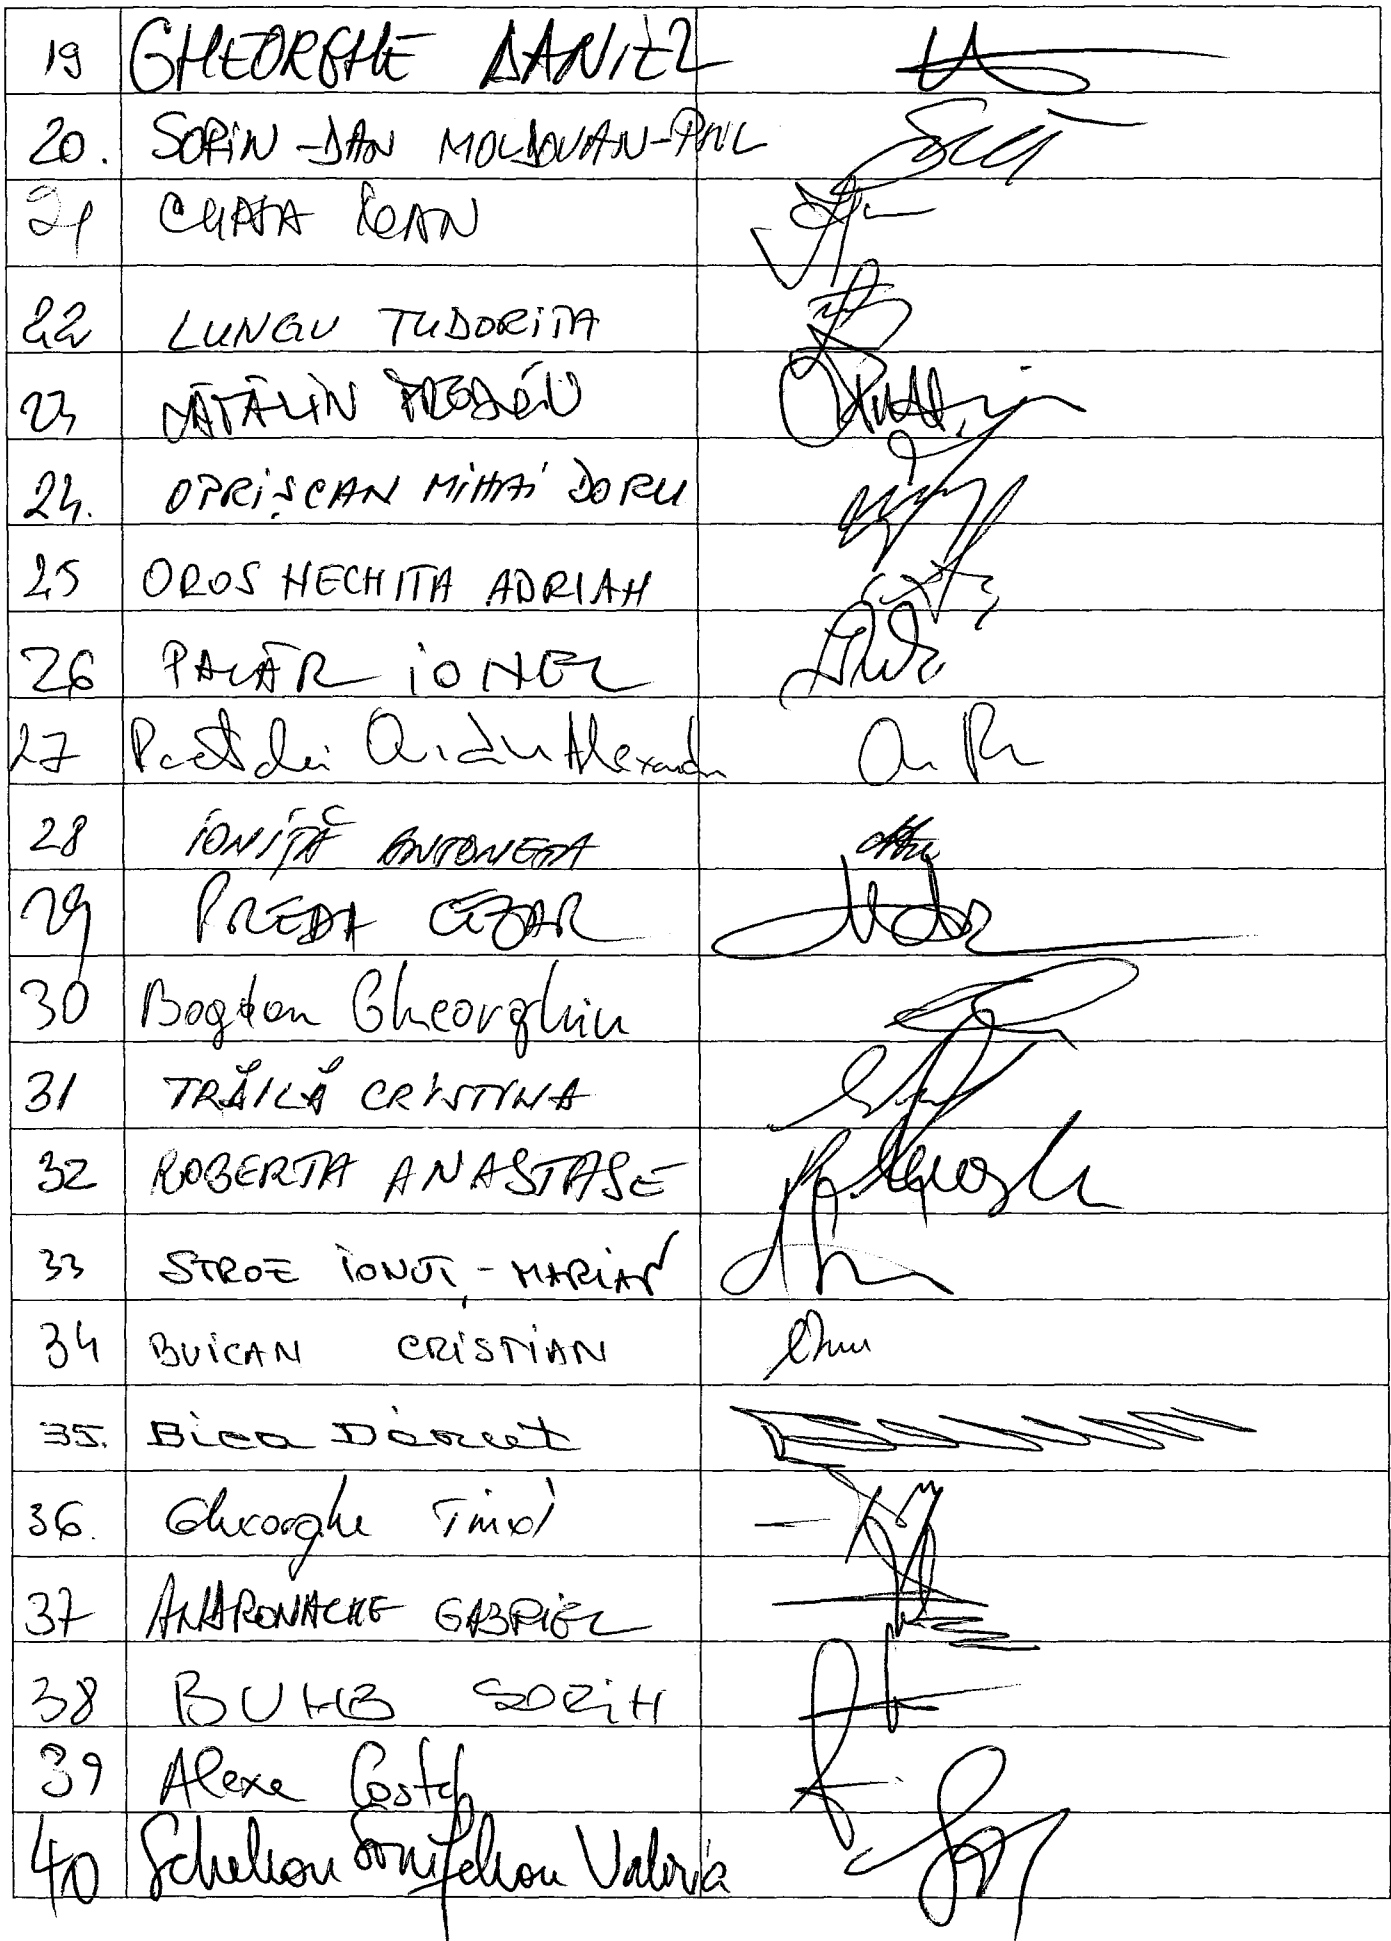 19 GHEORGHE DANIEL
20. SORIN-DAN MOLDOVAN-PNL
21 CUPȘA IOAN
22 LUNGU TUDORITA
23 CĂTĂLIN PREDOIU
24. OPRIȘCAN MIHAI DORU
25 OROS NECHITA ADRIAN
26 PALĂR IONEL
27 Ovidiu Alexandru
28 IONIȚĂ ANTONETA
29 PREDA CEZAR
30 Bogdan Gheorghiu
31 TRĂILĂ CRISTINA
32 ROBERTA ANASTASE
33 STROE IONUȚ-MARIAN
34 BUICAN CRISTIAN
35. Bica Dănuț
36. Gheorghe Tinel
37 ANDRONACHE GABRIEL
38 BUMB SORIN
39 Alexe Costel
40 Schelean Valeria